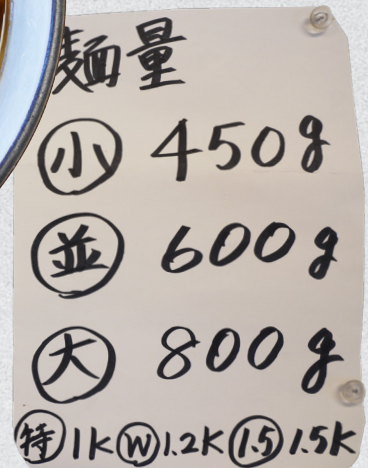 麺量
小 450g
並 600g
大 800g
特 1K W 1.2K 1.5 1.5K